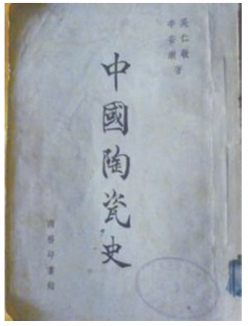 吳仁敬
辛安潮 著
中國陶瓷史
商務印書館